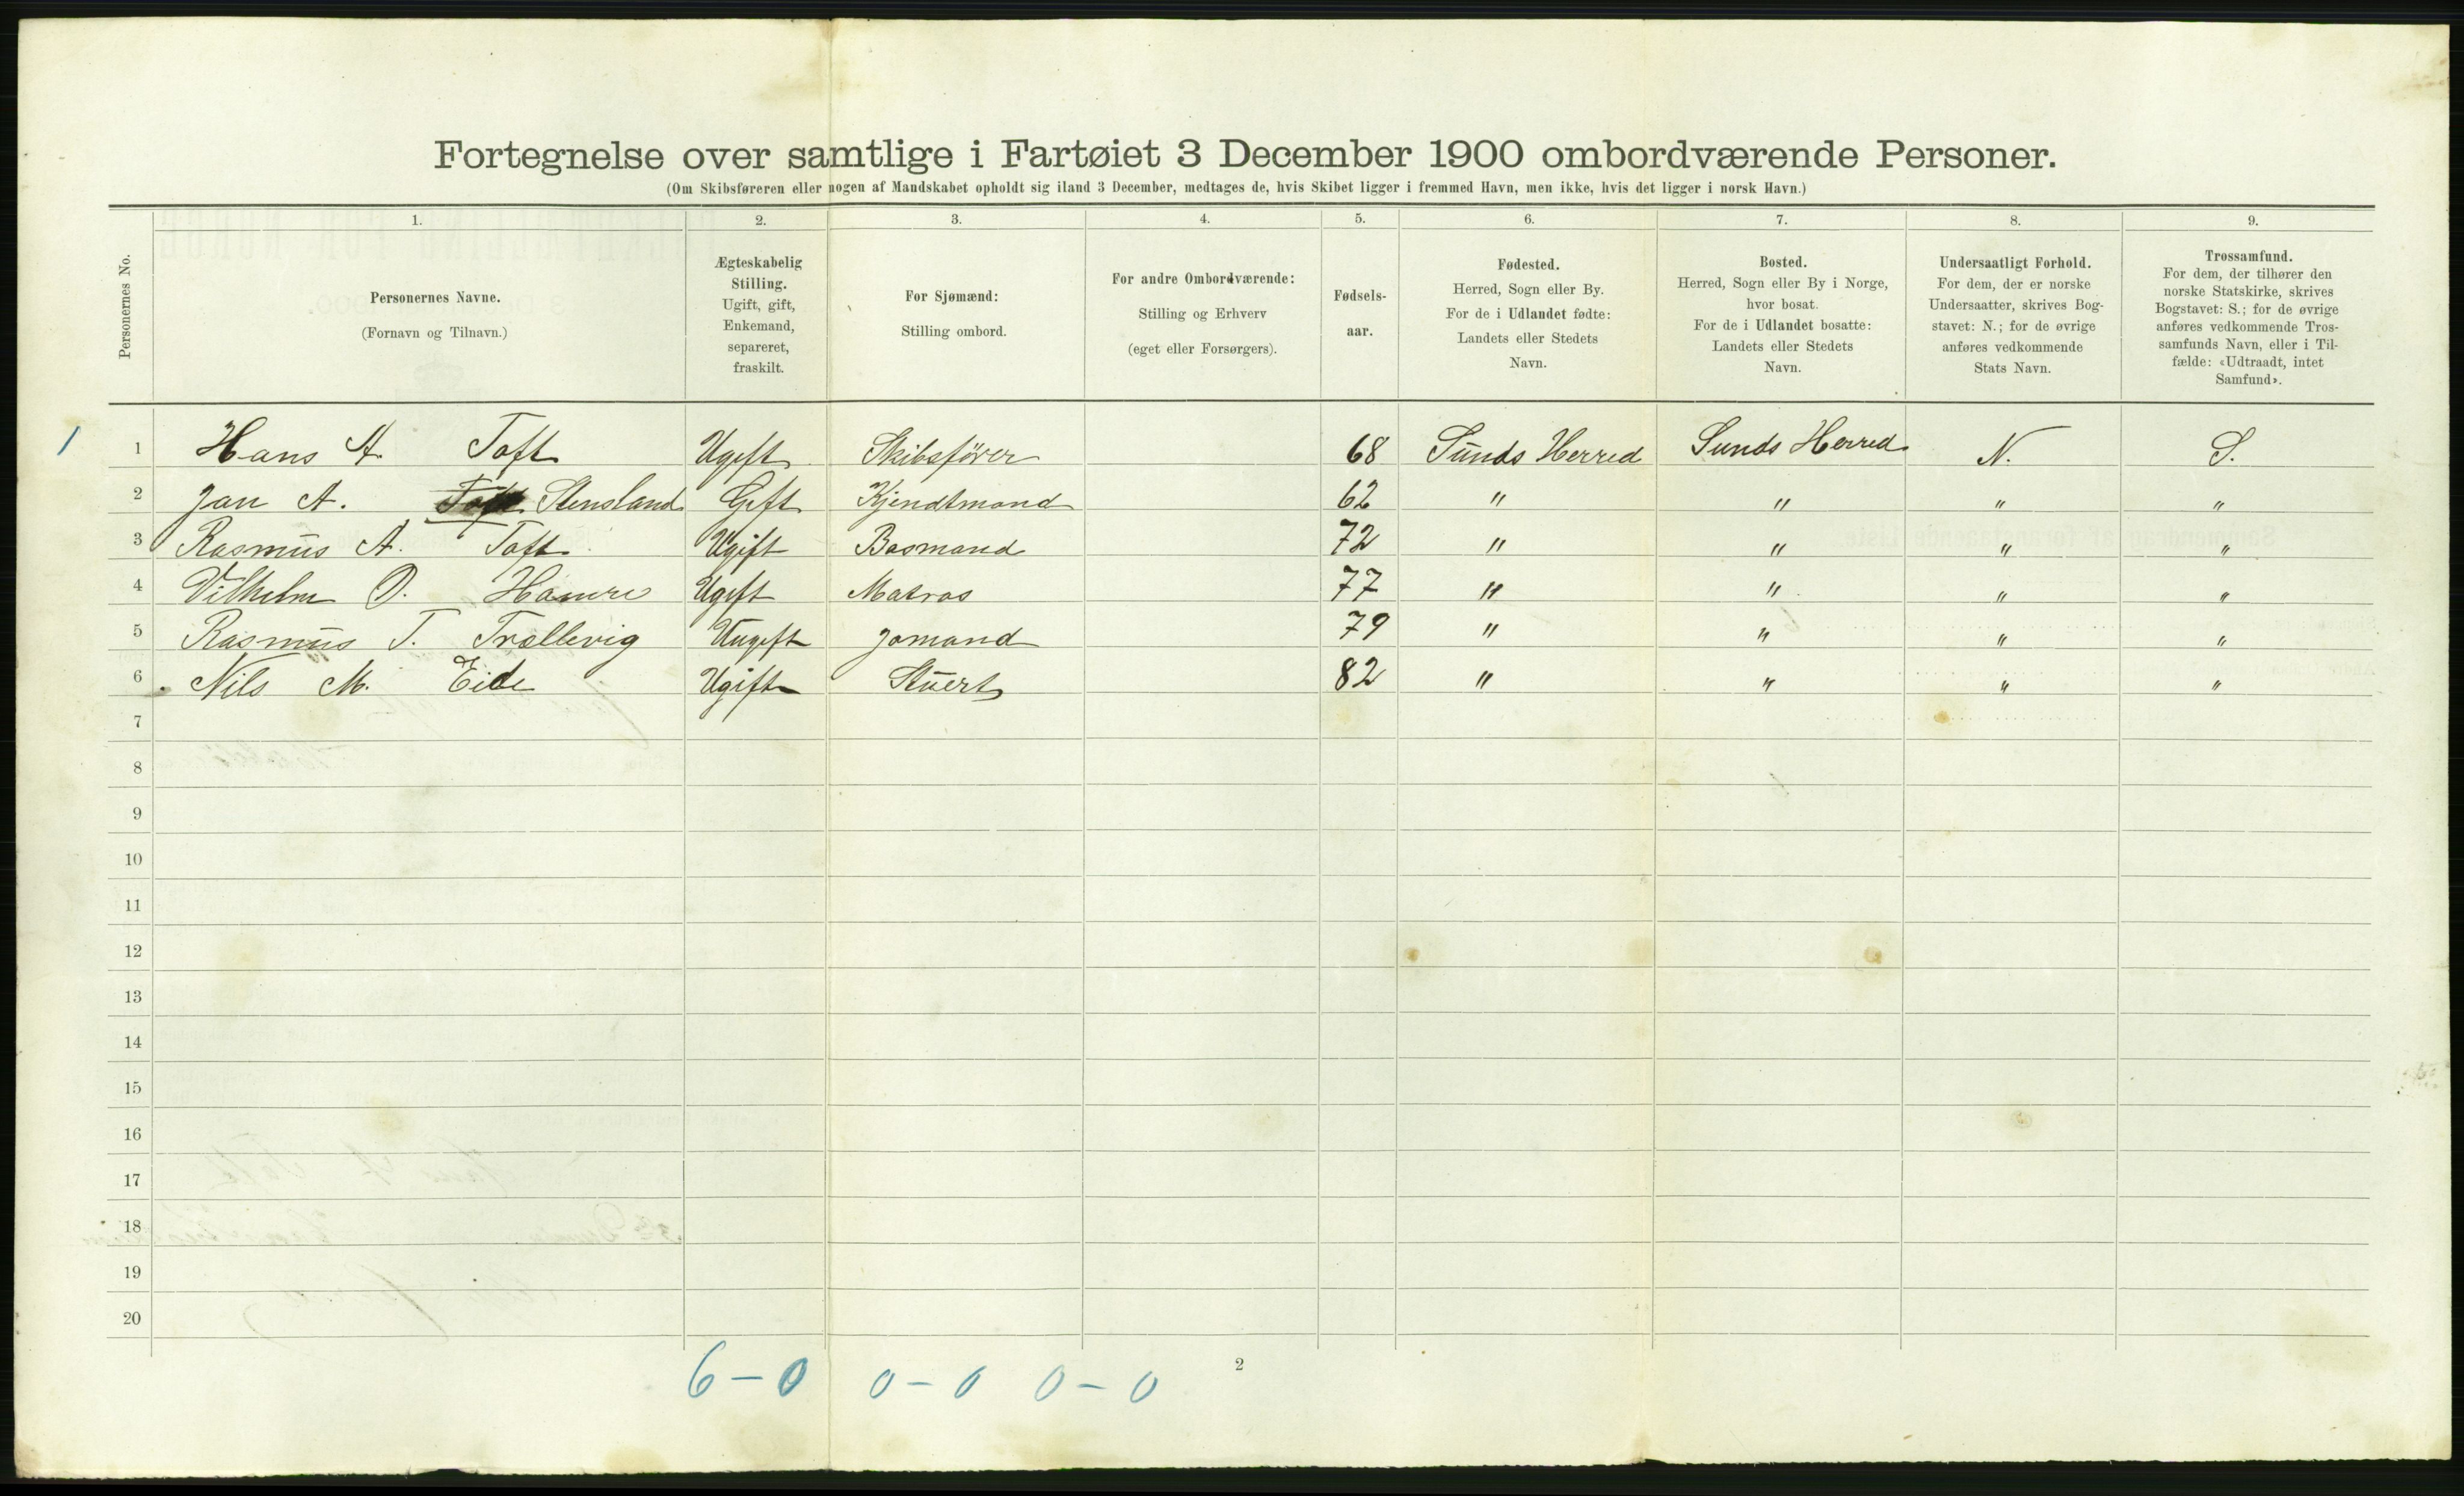 Fortegnelse over samtlige i Fartøiet 3 December 1900 ombordværende Personer.
(Om Skibsføreren eller nogen af Mandskabet opholdt sig iland 3 December, medtages de, hvis Skibet ligger i fremmed Havn, men ikke, hvis det ligger i norsk Havn.)
Personernes No.
1.
Personernes Navne.
(Fornavn og Tilnavn.)
2.
Ægteskabelig
Stilling.
Ugift, gift,
Enkemand,
separeret,
fraskilt.
3.
For Sjømænd:
Stilling ombord.
4.
For andre Ombordværende:
Stilling og Erhverv
(eget eller Forsørgers).
5.
Fødsels-
aar.
6.
Fødested.
Herred, Sogn eller By.
For de i Udlandet fødte:
Landets eller Stedets
Navn.
7.
Bosted.
Herred, Sogn eller By i Norge,
hvor bosat.
For de i Udlandet bosatte:
Landets eller Stedets
Navn.
8.
Undersaatligt Forhold.
For dem, der er norske
Undersaatter, skrives Bog-
stavet: N.; for de øvrige
anføres vedkommende
Stats Navn.
9.
Trossamfund.
For dem, der tilhører den
norske Statskirke, skrives
Bogstavet: S.; for de øvrige
anføres vedkommende Tros-
samfunds Navn, eller i Til-
fælde: «Udtraadt, intet
Samfund».
1 1 Hans A. Toft Ugift Skibsförer 68 Sunds Herred Sunds Herred N. S.
2 Jan A. Toft Stensland Gift Kjendtmand 62 " " " "
3 Rasmus A. Toft Ugift Basmand 72 " " " "
4 Vilhelm O. Hamre Ugift Matros 77 " " " "
5 Rasmus T. Trællevig Uugift Jomand 79 " " " "
6 Nils M. Eide Ugift Stuert 82 " " " "
7
8
9
10
11
12
13
14
15
16
17
18
19
20
2
6 – 0 0 – 0 0 – 0